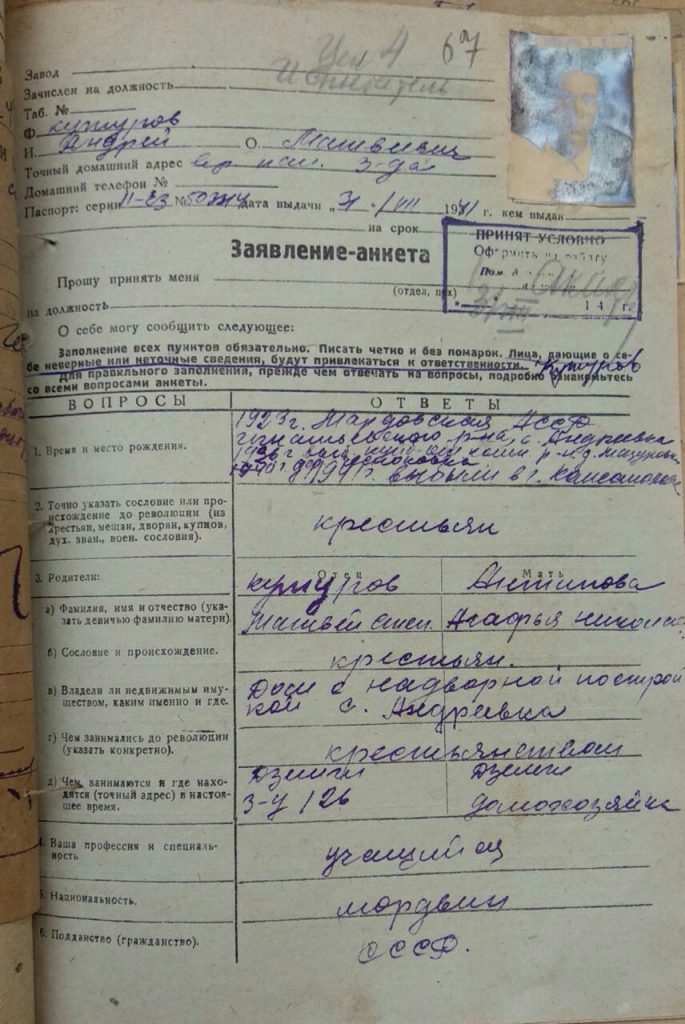 67
Завод
Зачислен на должность
Таб. №
Ф.
И. Андрей О. Матвеевич
Точный домашний адрес 3-да
Домашний телефон №
Паспорт: серии № дата выдачи „31“ VII 1941 г. кем выдан
на срок
ПРИНЯТ УСЛОВНО
Заявление-анкета
Прошу принять меня
(отдел, цех)
на должность
194 г.
О себе могу сообщить следующее:
Заполнение всех пунктов обязательно. Писать четко и без помарок. Лица, дающие о се-
бе неверные или неточные сведения, будут привлекаться к ответственности.
Для правильного заполнения, прежде чем отвечать на вопросы, подробно ознакомьтесь
со всеми вопросами анкеты.
ВОПРОСЫ ОТВЕТЫ
1. Время и место рождения.
1923 г. Мордовская АССР
р-на, с. Андреевка
1941 г. выбыли в г.
2. Точно указать сословие или про-
исхождение до революции (из
крестьян, мещан, дворян, купцов,
дух. зван., воен. сословия).
крестьян
3. Родители: Отец Мать
Антипова
а) Фамилия, имя и отчество (ука-
зать девичью фамилию матери).
Матвей Агафья
б) Сословие и происхождение.
крестьян.
в) Владели ли недвижимым иму-
ществом, каким именно и где.
Дом с надворной построй
кой с. Андреевка
г) Чем занимались до революции
(указать конкретно).
крестьянством
д) Чем занимаются и где нахо-
дятся (точный адрес) в настоя-
щее время.
Дземги Дземги
3-У/26 домохозяйка
4. Ваша профессия и специаль-
ность
учащийся
5. Национальность.
мордвин
6. Подданство (гражданство).
СССР.